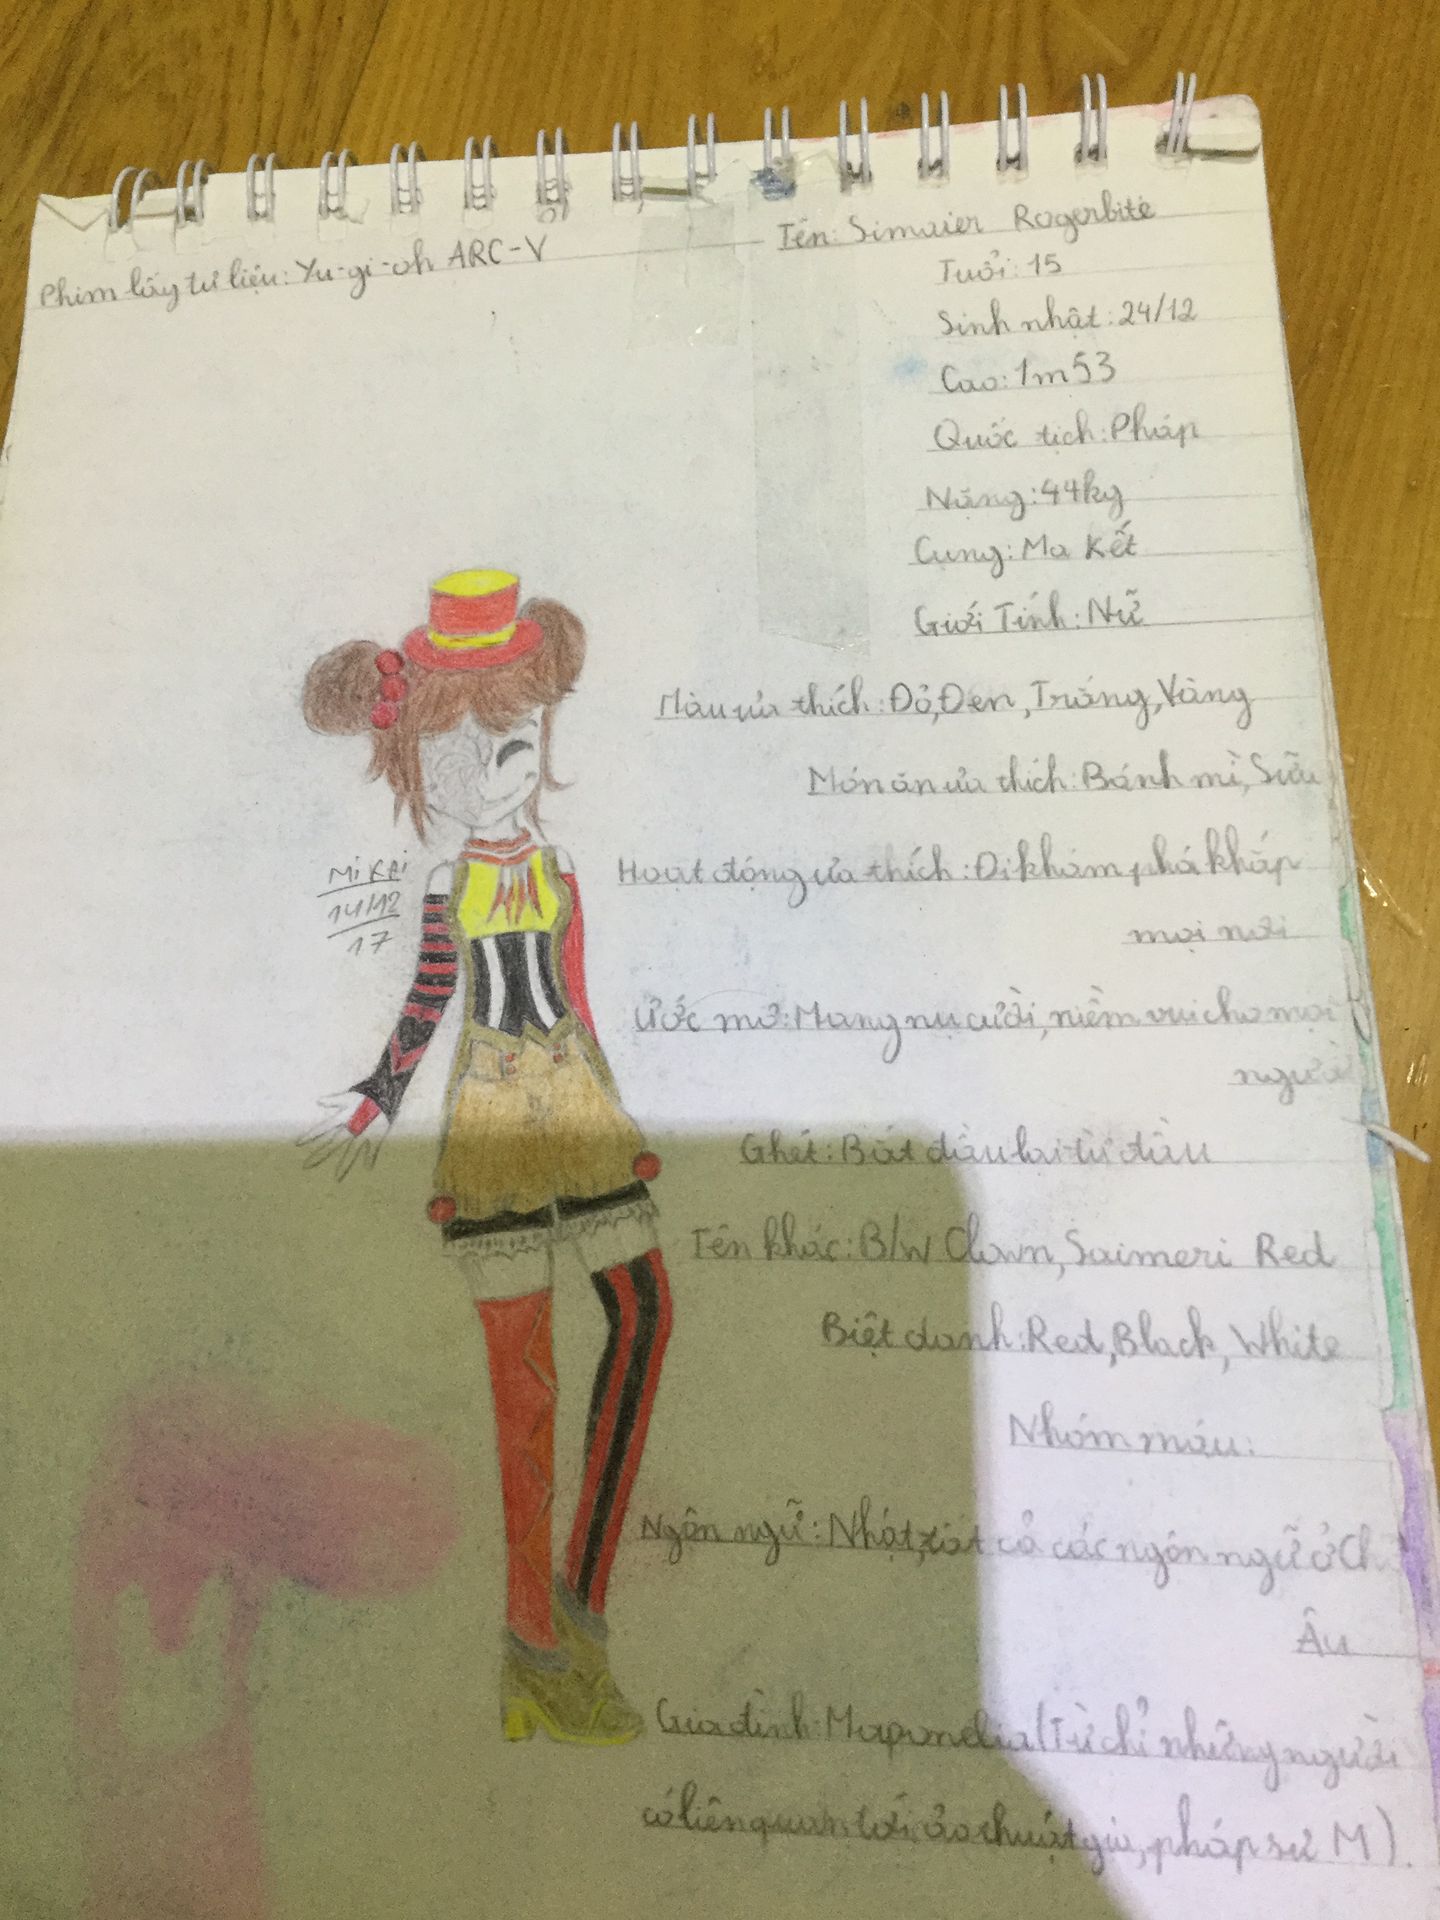 Phim lấy tư liệu: Yu-gi-oh ARC-V
Tên: Simaier Rogerbite
Tuổi: 15
Sinh nhật: 24/12
Cao: 1m53
Quốc tịch: Pháp
Nặng: 44kg
Cung: Ma Kết
Giới Tính: Nữ
Màu ưa thích: Đỏ, Đen, Trắng, Vàng
Món ăn ưa thích: Bánh mì, Sữa
Hoạt động ưa thích: Đi khám phá khắp
mọi nơi
Ước mơ: Mang nụ cười, niềm vui cho mọi
người
Ghét: Bắt đầu lại từ đầu
Tên khác: B/W Clown, Saimeri Red
Biệt danh: Red, Black, White
Nhóm máu:
Ngôn ngữ: Nhật, tất cả các ngôn ngữ ở
Âu
Gia đình: Mapanelia (Từ chỉ những người
có liên quan tới ảo thuật gia, pháp sư M).
MiKAi
14/12
17